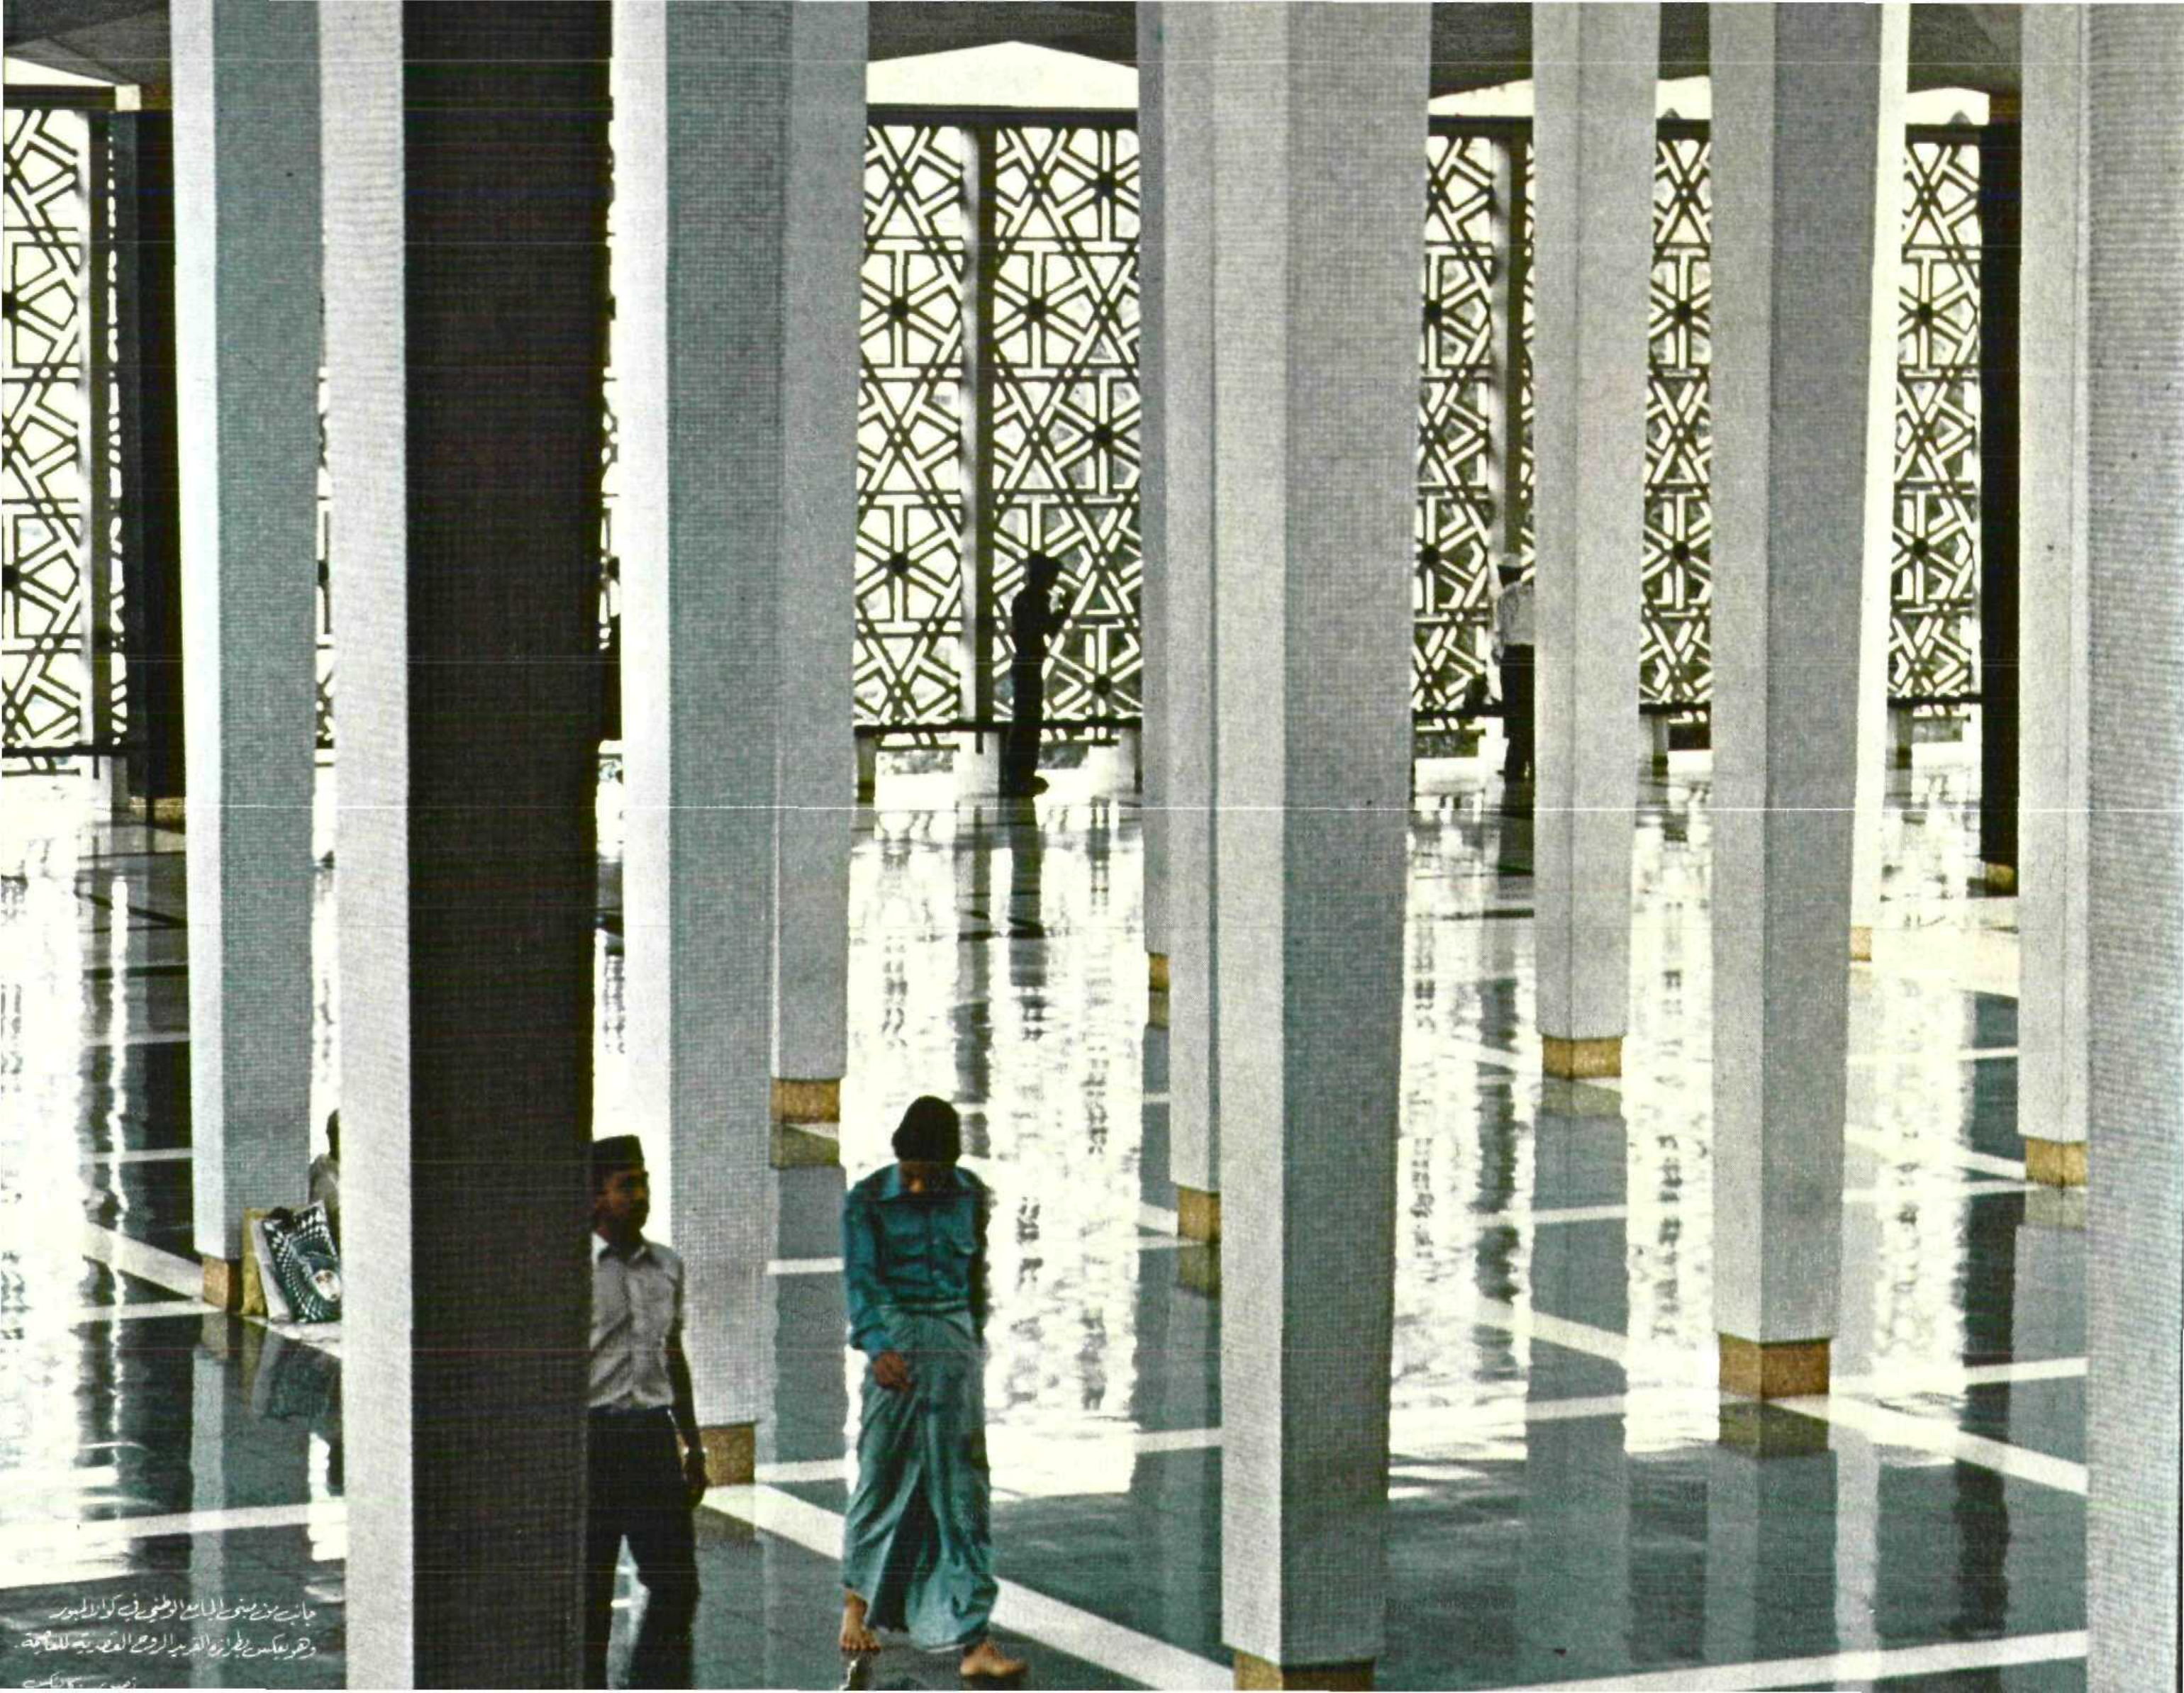 جانب من مبنى الجامع الوطني في كوالالمبور
وهو يعكس بطرازه الفريد الروح العصرية للعاصمة.
تصوير: